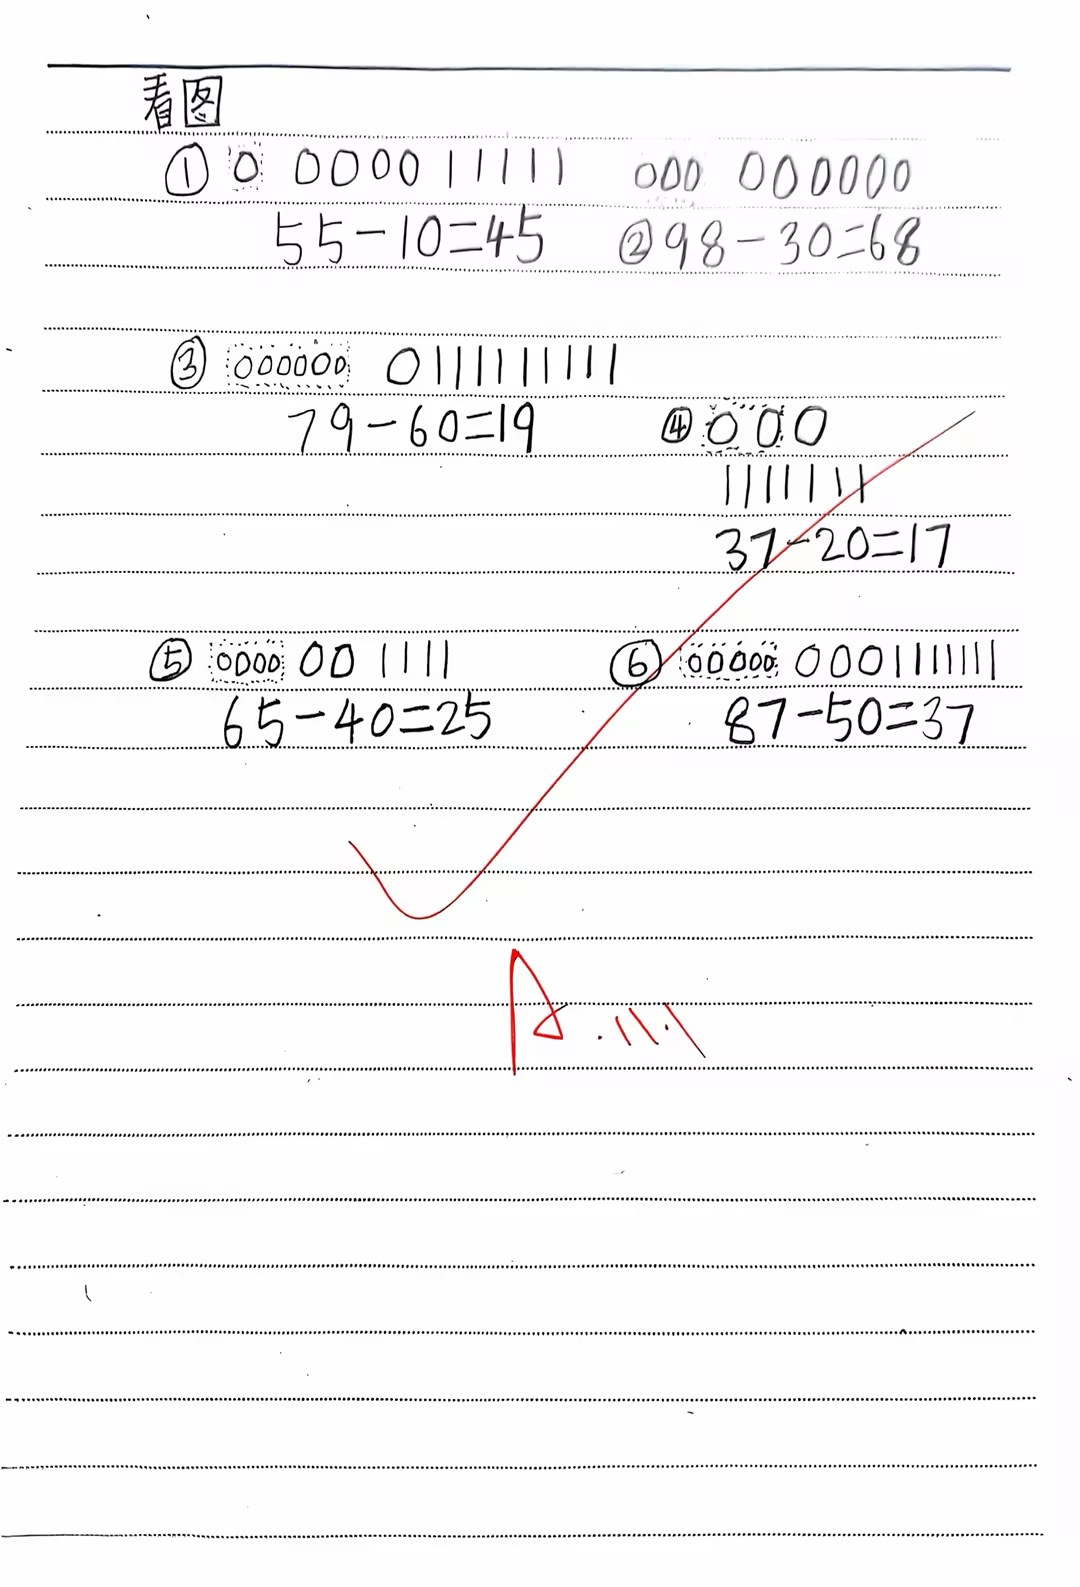 看图
① 0 0000 11111 000 000000
55-10=45 ②98-30=68
③ 000000 0111111111
79-60=19 ④000
1111111
37-20=17
⑤ 0000 00 1111 ⑥ 00000 0001111111
65-40=25 87-50=37
A